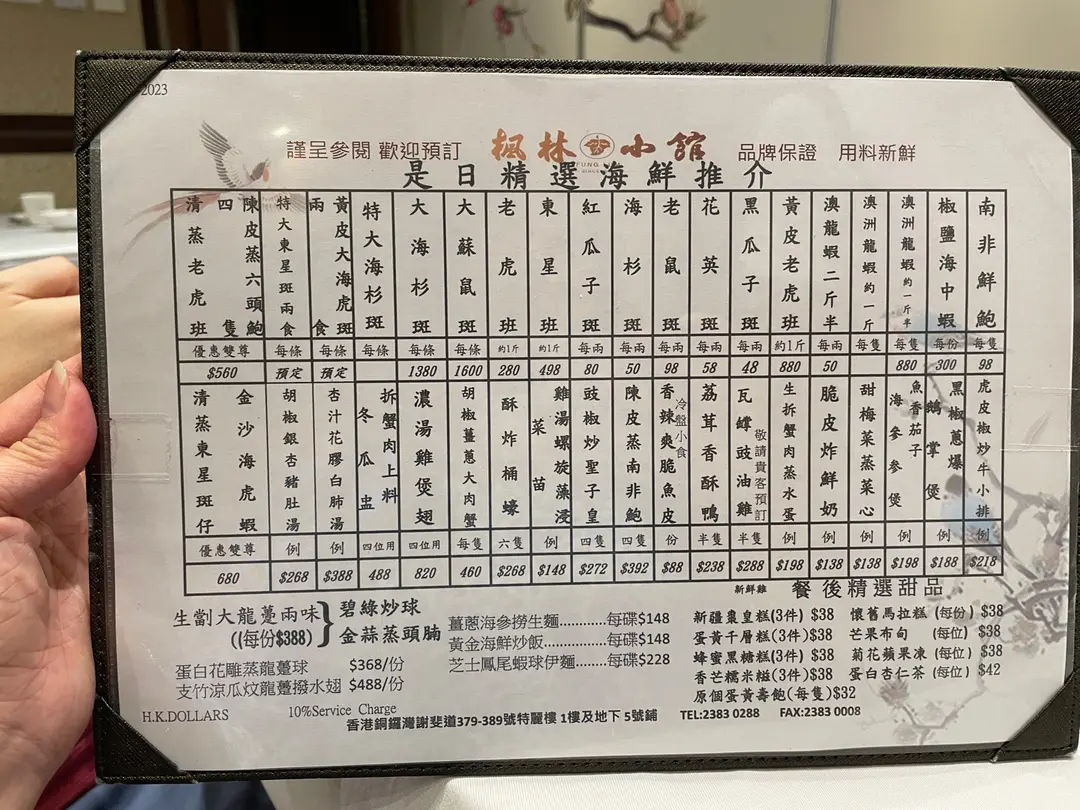 2023
謹呈參閱 歡迎預訂 楓林小館 品牌保證 用料新鮮
FUNG
是日精選海鮮推介
南非鮮鮑 每隻 98
椒鹽海中蝦 每份 300
澳洲龍蝦約一斤半 每隻 880
澳洲龍蝦約一斤 每隻
澳龍蝦二斤半 每兩 50
黃皮老虎班 約1斤 880
黑瓜子斑 每兩 48
花英斑 每兩 58
老鼠斑 每兩 98
海杉斑 每兩 50
紅瓜子斑 每兩 80
東星斑 約1斤 498
老虎班 約1斤 280
大蘇鼠斑 每條 1600
大海杉斑 每條 1380
特大海杉斑 每條
黃皮大海虎斑兩食 每條 預定
特大東星斑兩食 每條 預定
陳皮蒸六頭鮑四隻
清蒸老虎班
優惠雙尊 $560
虎皮椒炒牛小排 例 $218
黑椒蔥爆鵝掌煲 例 $188
魚香茄子海參煲 例 $198
甜梅菜蒸菜心 例 $138
脆皮炸鮮奶 例 $138
生拆蟹肉蒸水蛋 例 $198
瓦罉豉油雞 敬請貴客預訂 半隻 $288
新鮮雞
荔茸香酥鴨 半隻 $238
冷盤小食 香辣爽脆魚皮 份 $88
陳皮蒸南非鮑 四隻 $392
豉椒炒聖子皇 四隻 $272
雞湯螺旋藻浸菜苗 例 $148
酥炸桶蠔 六隻 $268
胡椒薑蔥大肉蟹 每隻 460
濃湯雞煲翅 四位用 820
拆蟹肉上料冬瓜盅 四位用 488
杏汁花膠白肺湯 例 $388
胡椒銀杏豬肚湯 例 $268
金沙海虎蝦
清蒸東星斑仔
優惠雙尊 680
生劏大龍躉兩味 碧綠炒球
((每份$388) 金蒜蒸頭腩
蛋白花雕蒸龍躉球 $368/份
支竹涼瓜炆龍躉撥水翅 $488/份
薑蔥海參撈生麵............每碟$148
黃金海鮮炒飯...............每碟$148
芝士鳳尾蝦球伊麵........每碟$228
餐後精選甜品
新疆棗皇糕(3件) $38 懷舊馬拉糕 (每份) $38
蛋黃千層糕(3件)$38 芒果布甸 (每位) $38
蜂蜜黑糖糕(3件) $38 菊花蘋果凍 (每位) $38
香芒糯米糍(3件)$38 蛋白杏仁茶 (每位) $42
原個蛋黃壽飽(每隻)$32
H.K.DOLLARS 10%Service Charge
香港銅鑼灣謝斐道379-389號特麗樓 1樓及地下 5號鋪 TEL:2383 0288 FAX:2383 0008